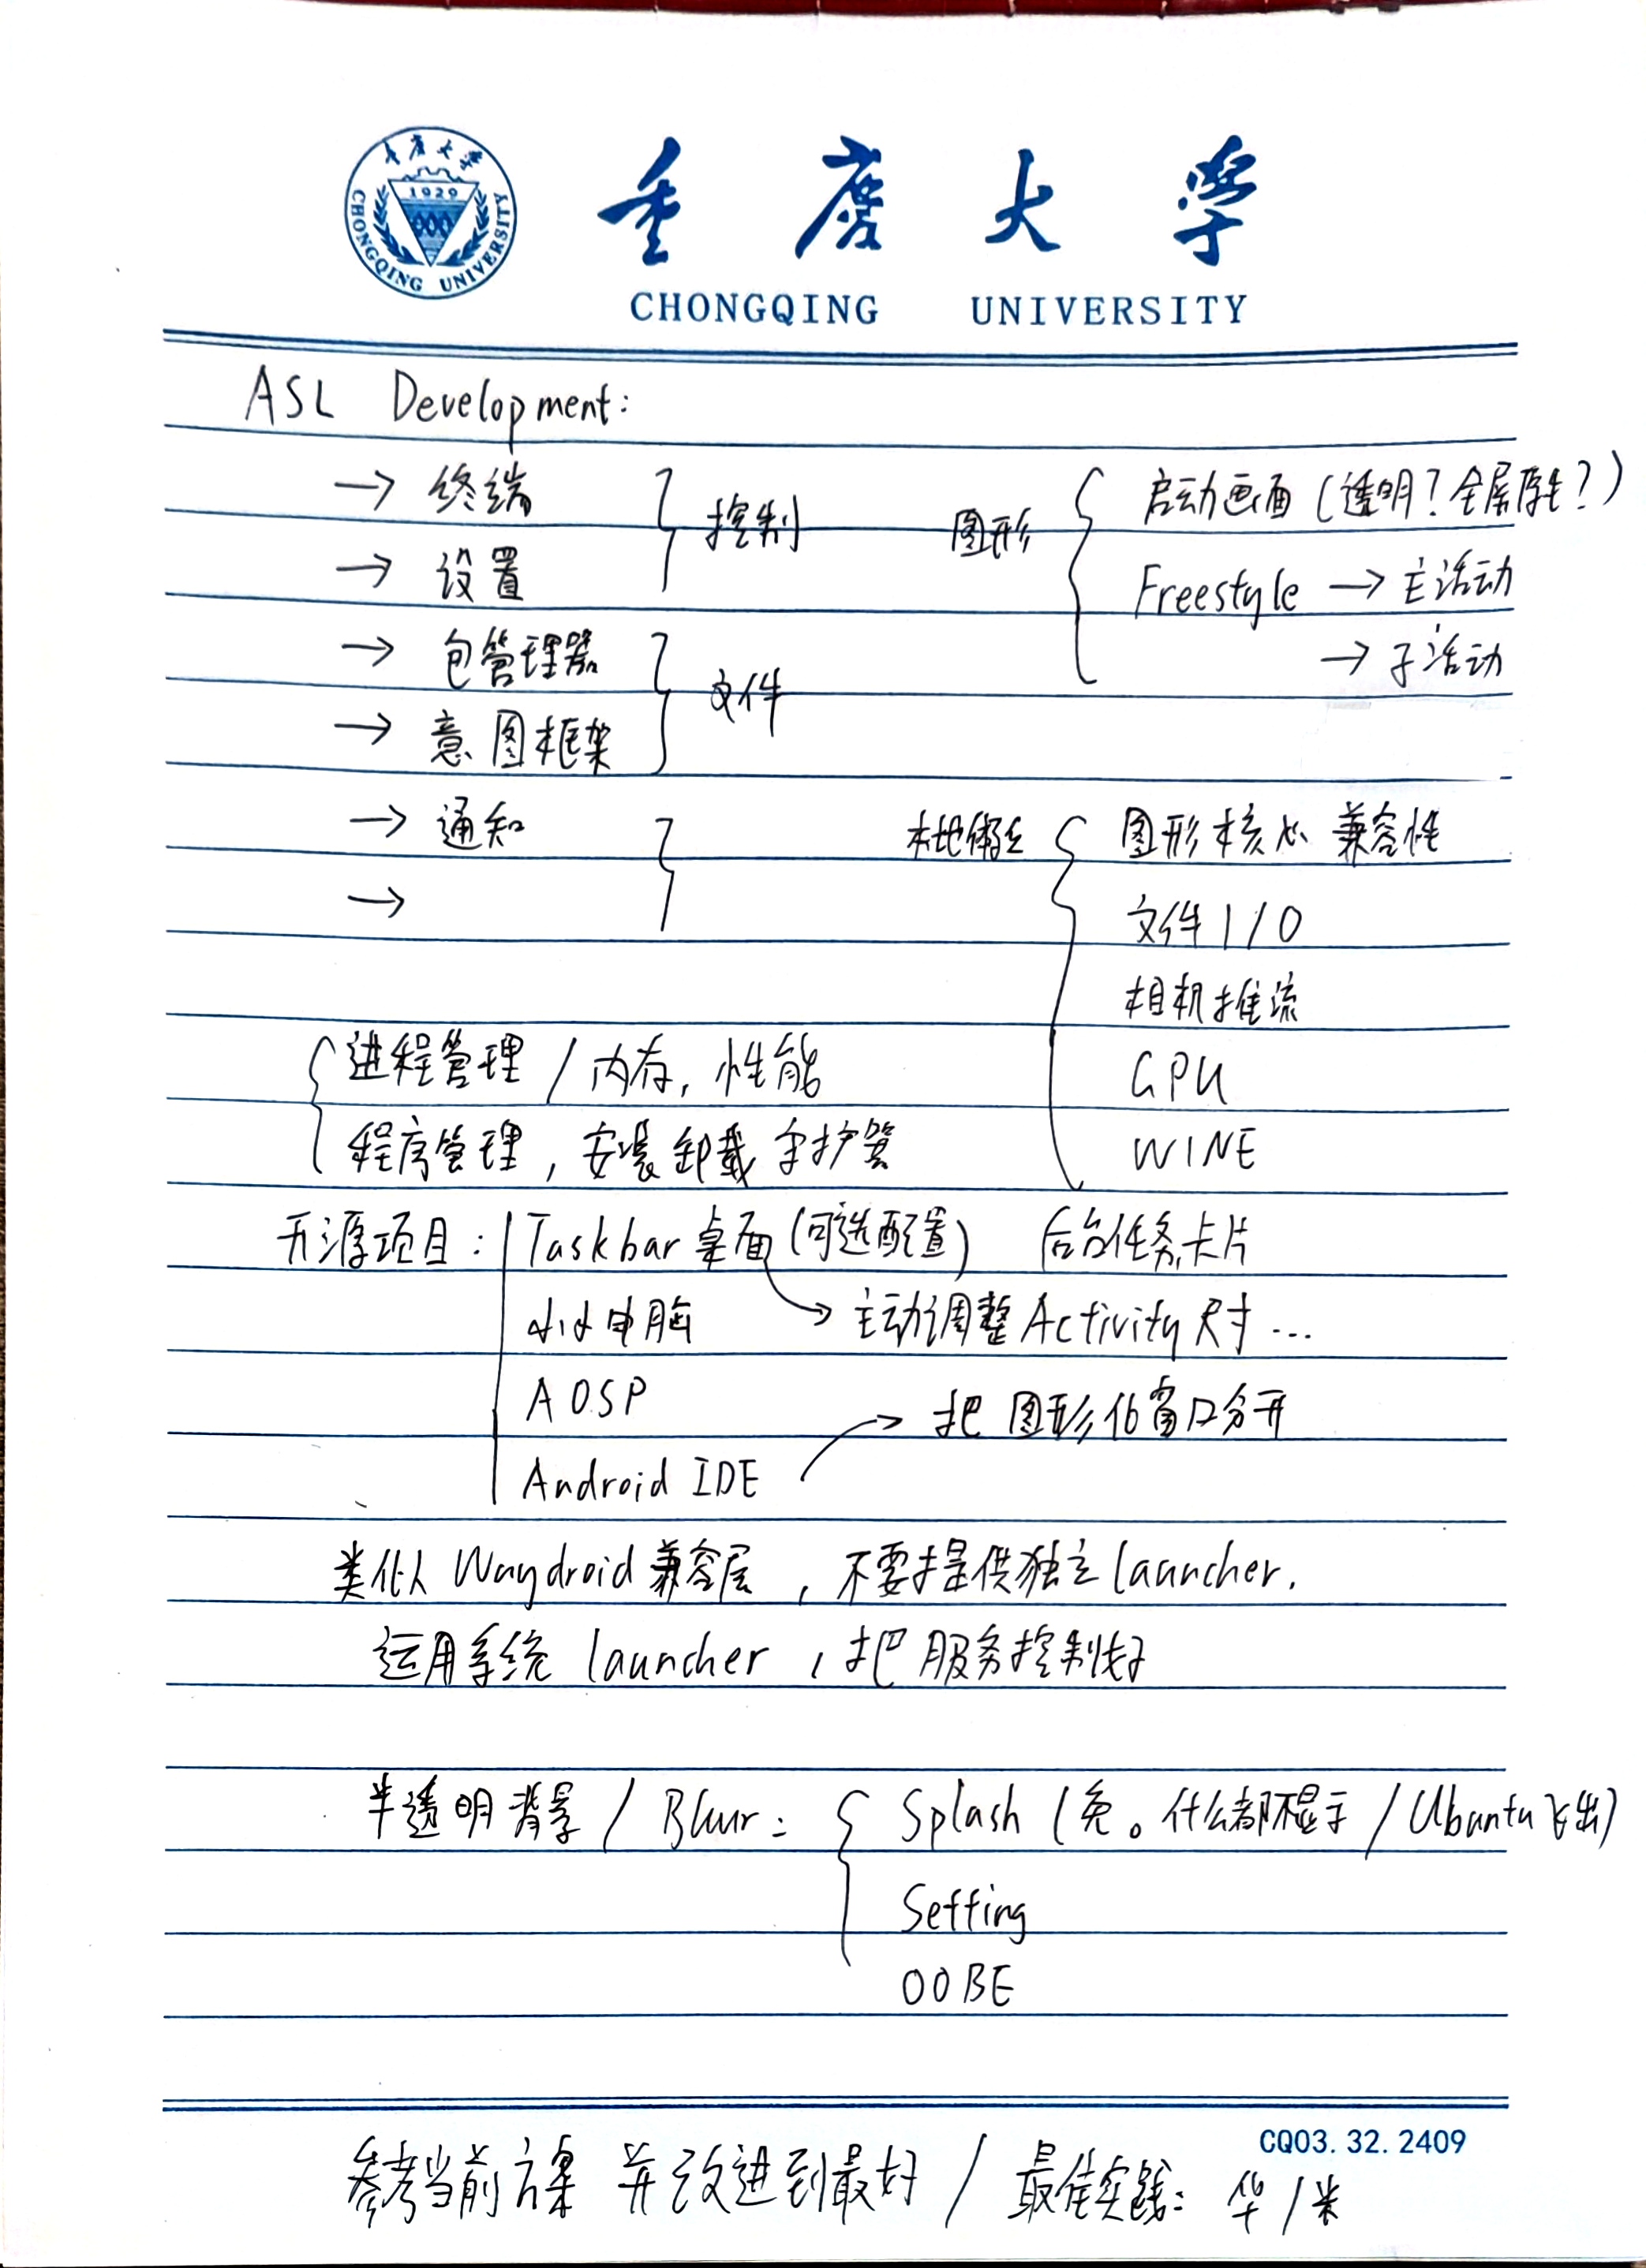 重庆大学
CHONGQING UNIVERSITY
重庆大学
1929
CHONGQING UNIVERSITY
ASL Development:
→ 终端
→ 设置
控制
→ 包管理器
→ 意图框架
文件
→ 通知
→
图形
启动画面(透明?全屏?)
Freestyle → 主活动
→ 子活动
本地
图形核心 兼容性
文件 I/O
相机推流
GPU
WINE
进程管理 / 内存, 性能
程序管理, 安装卸载
开源项目: Taskbar 桌面(可选配置) 后台任务卡片
小小电脑 → 主动调整Activity尺寸...
AOSP
Android IDE → 把图形化窗口分开
类似Waydroid兼容层, 不要提供独立launcher.
运用系统 launcher, 把服务控制好
半透明背景 / Blur: Splash (免。什么都不显示 / Ubuntu飞出)
Setting
OOBE
CQ03.32.2409
参考当前方案 并改进到最好 / 最佳实践: 华/米